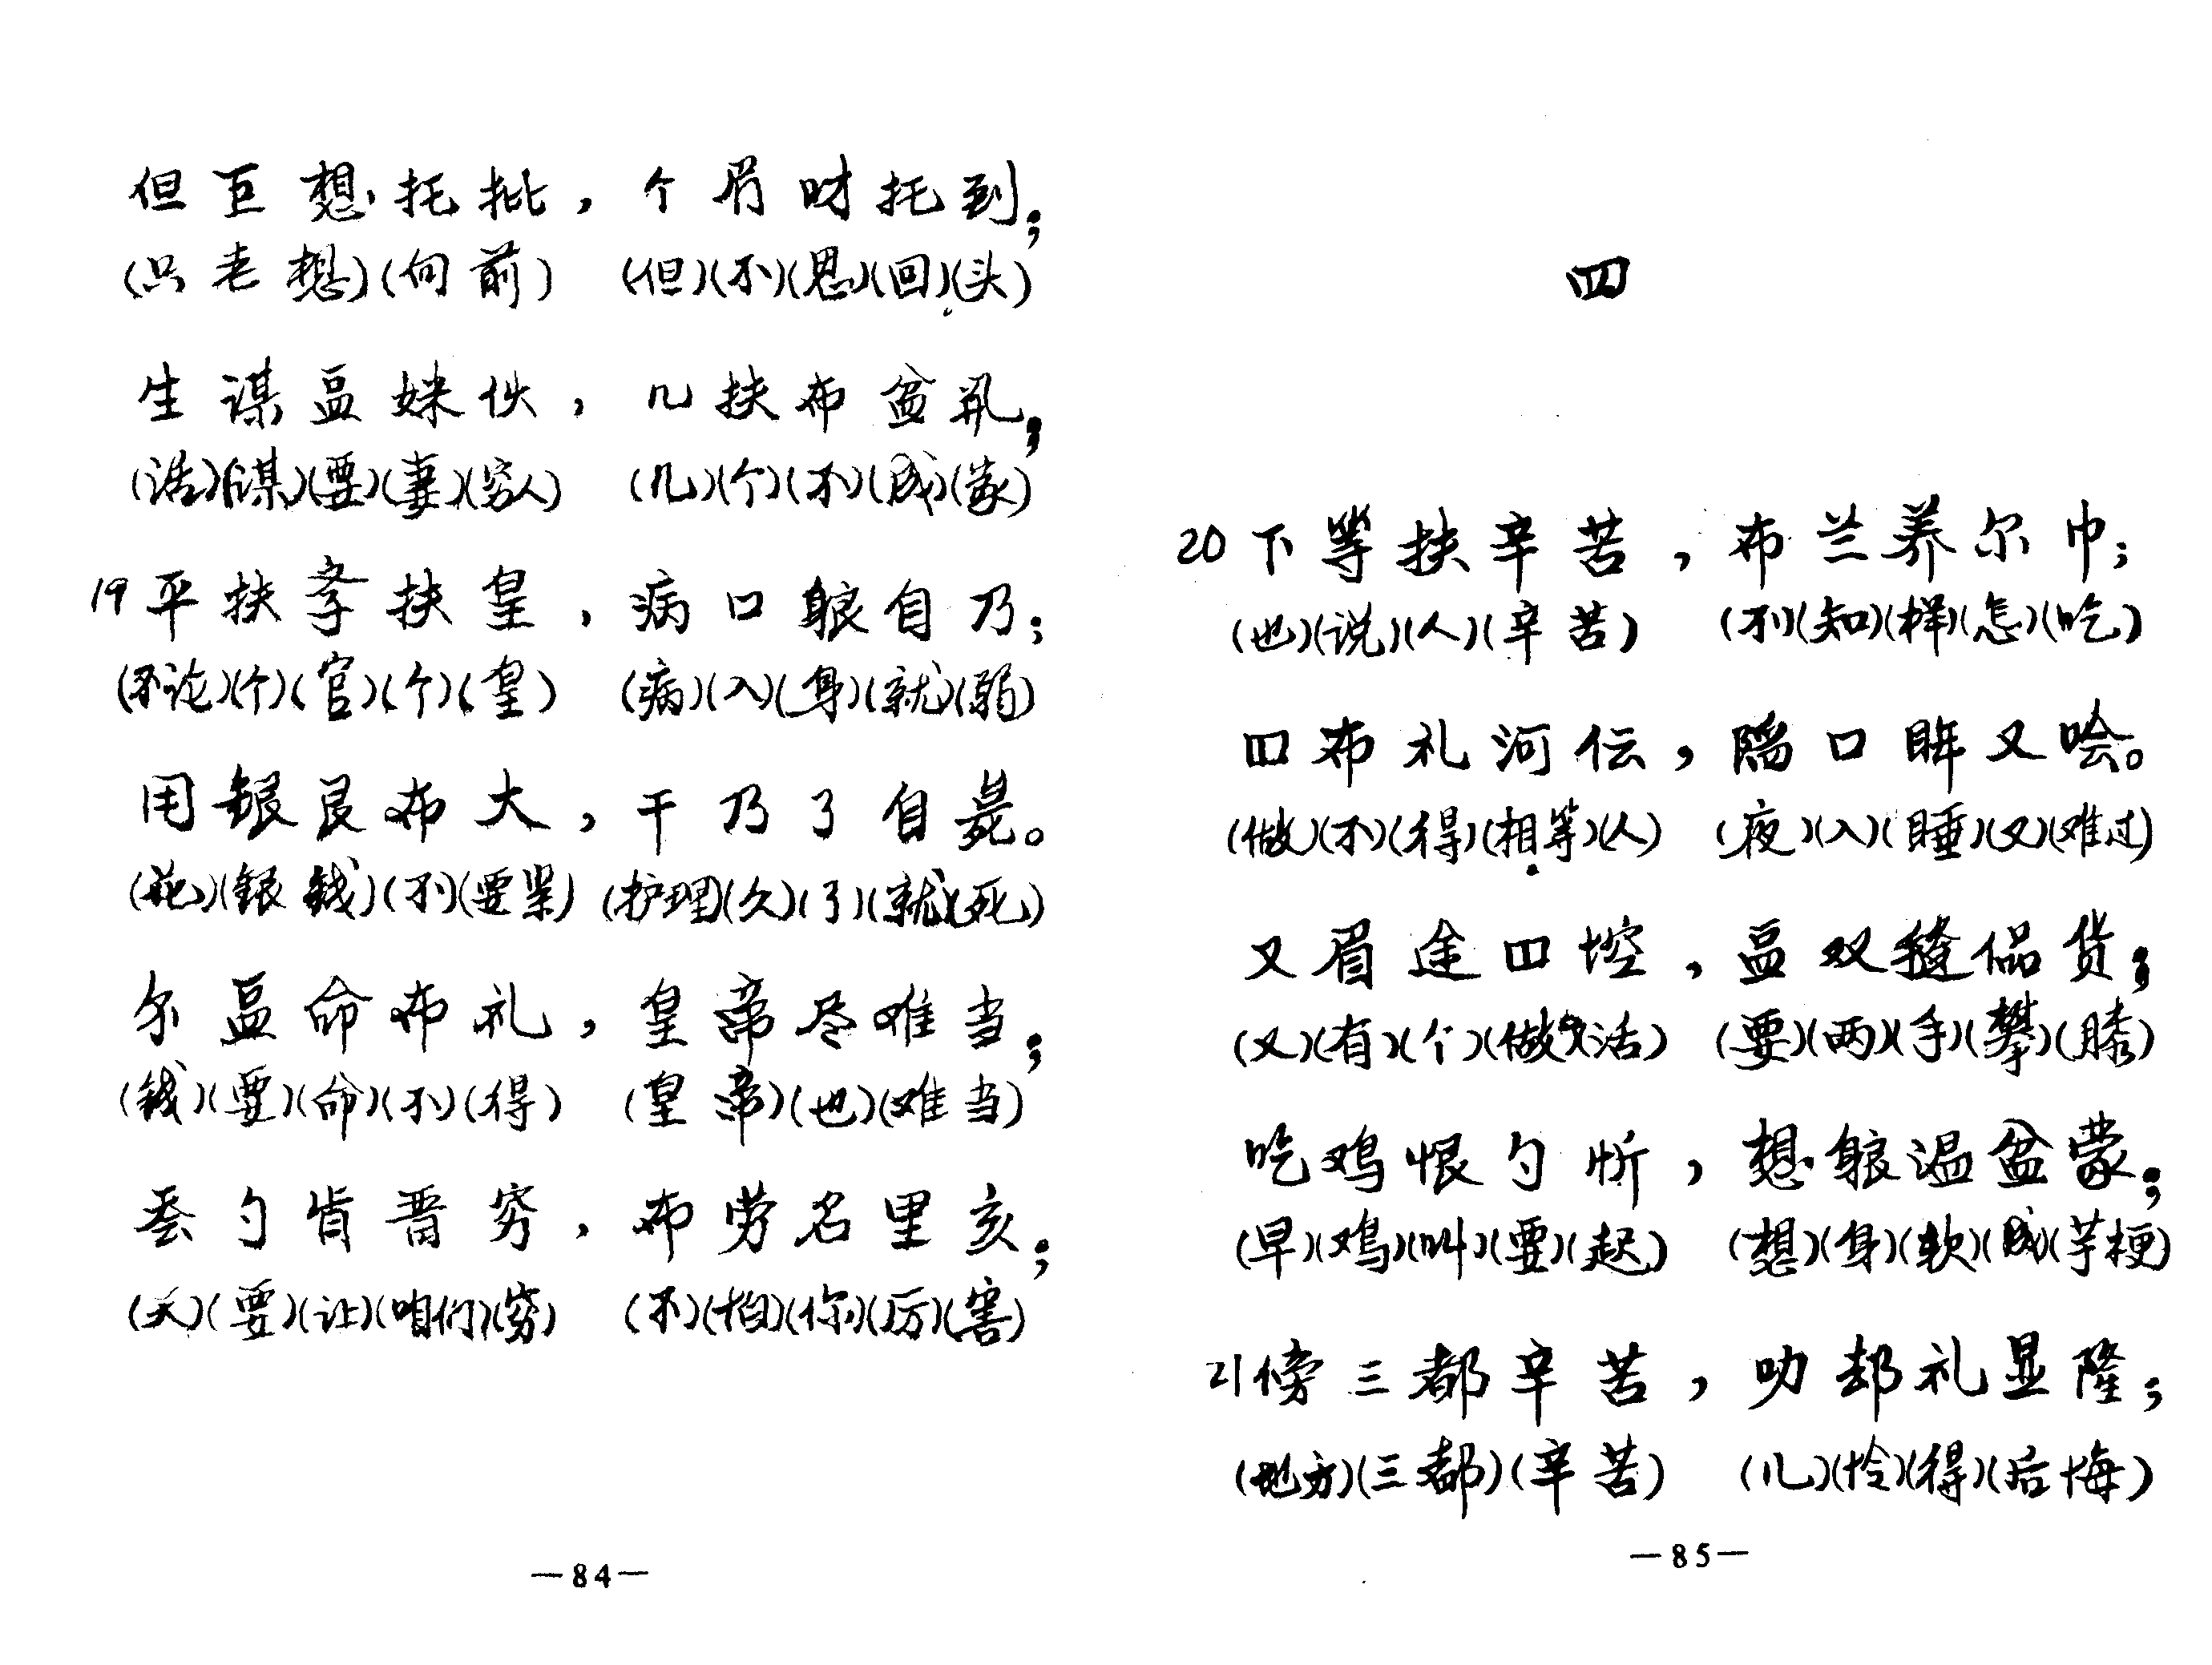 但巨想托批，个眉时托到；
(只老想)(向前) (但)(不)(思)(回)(头)
生谋昷妹伙，几扶布盆巩；
(活)(谋)(要)(妻)(穷人) (几)(个)(不)(成)(家)
19平扶扶皇，病口躴自乃；
(不论)(个)(官)(个)(皇) (病)(入)(身)(就)(弱)
用银艮布大，干乃了自毙。
(花)(银钱)(不)(要紧) (护理)(久)(了)(就)(死)
尔昷命布礼，皇帝尽难当；
(钱)(要)(命)(不)(得) (皇帝)(也)(难当)
勺肯晋穷，布劳名里亥；
(天)(要)(让)(咱们)(穷) (不)(怕)(你)(厉)(害)
—84—
四
20下等扶辛苦，布兰养尔巾；
(也)(说)(人)(辛苦) (不)(知)(样)(怎)(吃)
四布礼河伝，口眸又哙。
(做)(不)(得)(相等)(人) (夜)(入)(睡)(又)(难过)
又眉途四埪，昷双货；
(又)(有)(个)(做活) (要)(两)(手)(攀)(膝)
吃鸡恨勺忻，想躴温盆蒙；
(早)(鸡)(叫)(要)(起) (想)(身)(软)(成)(芋梗)
21傍三都辛苦，叻却礼显隆；
(地方)(三都)(辛苦) (儿)(怜)(得)(后悔)
—85—